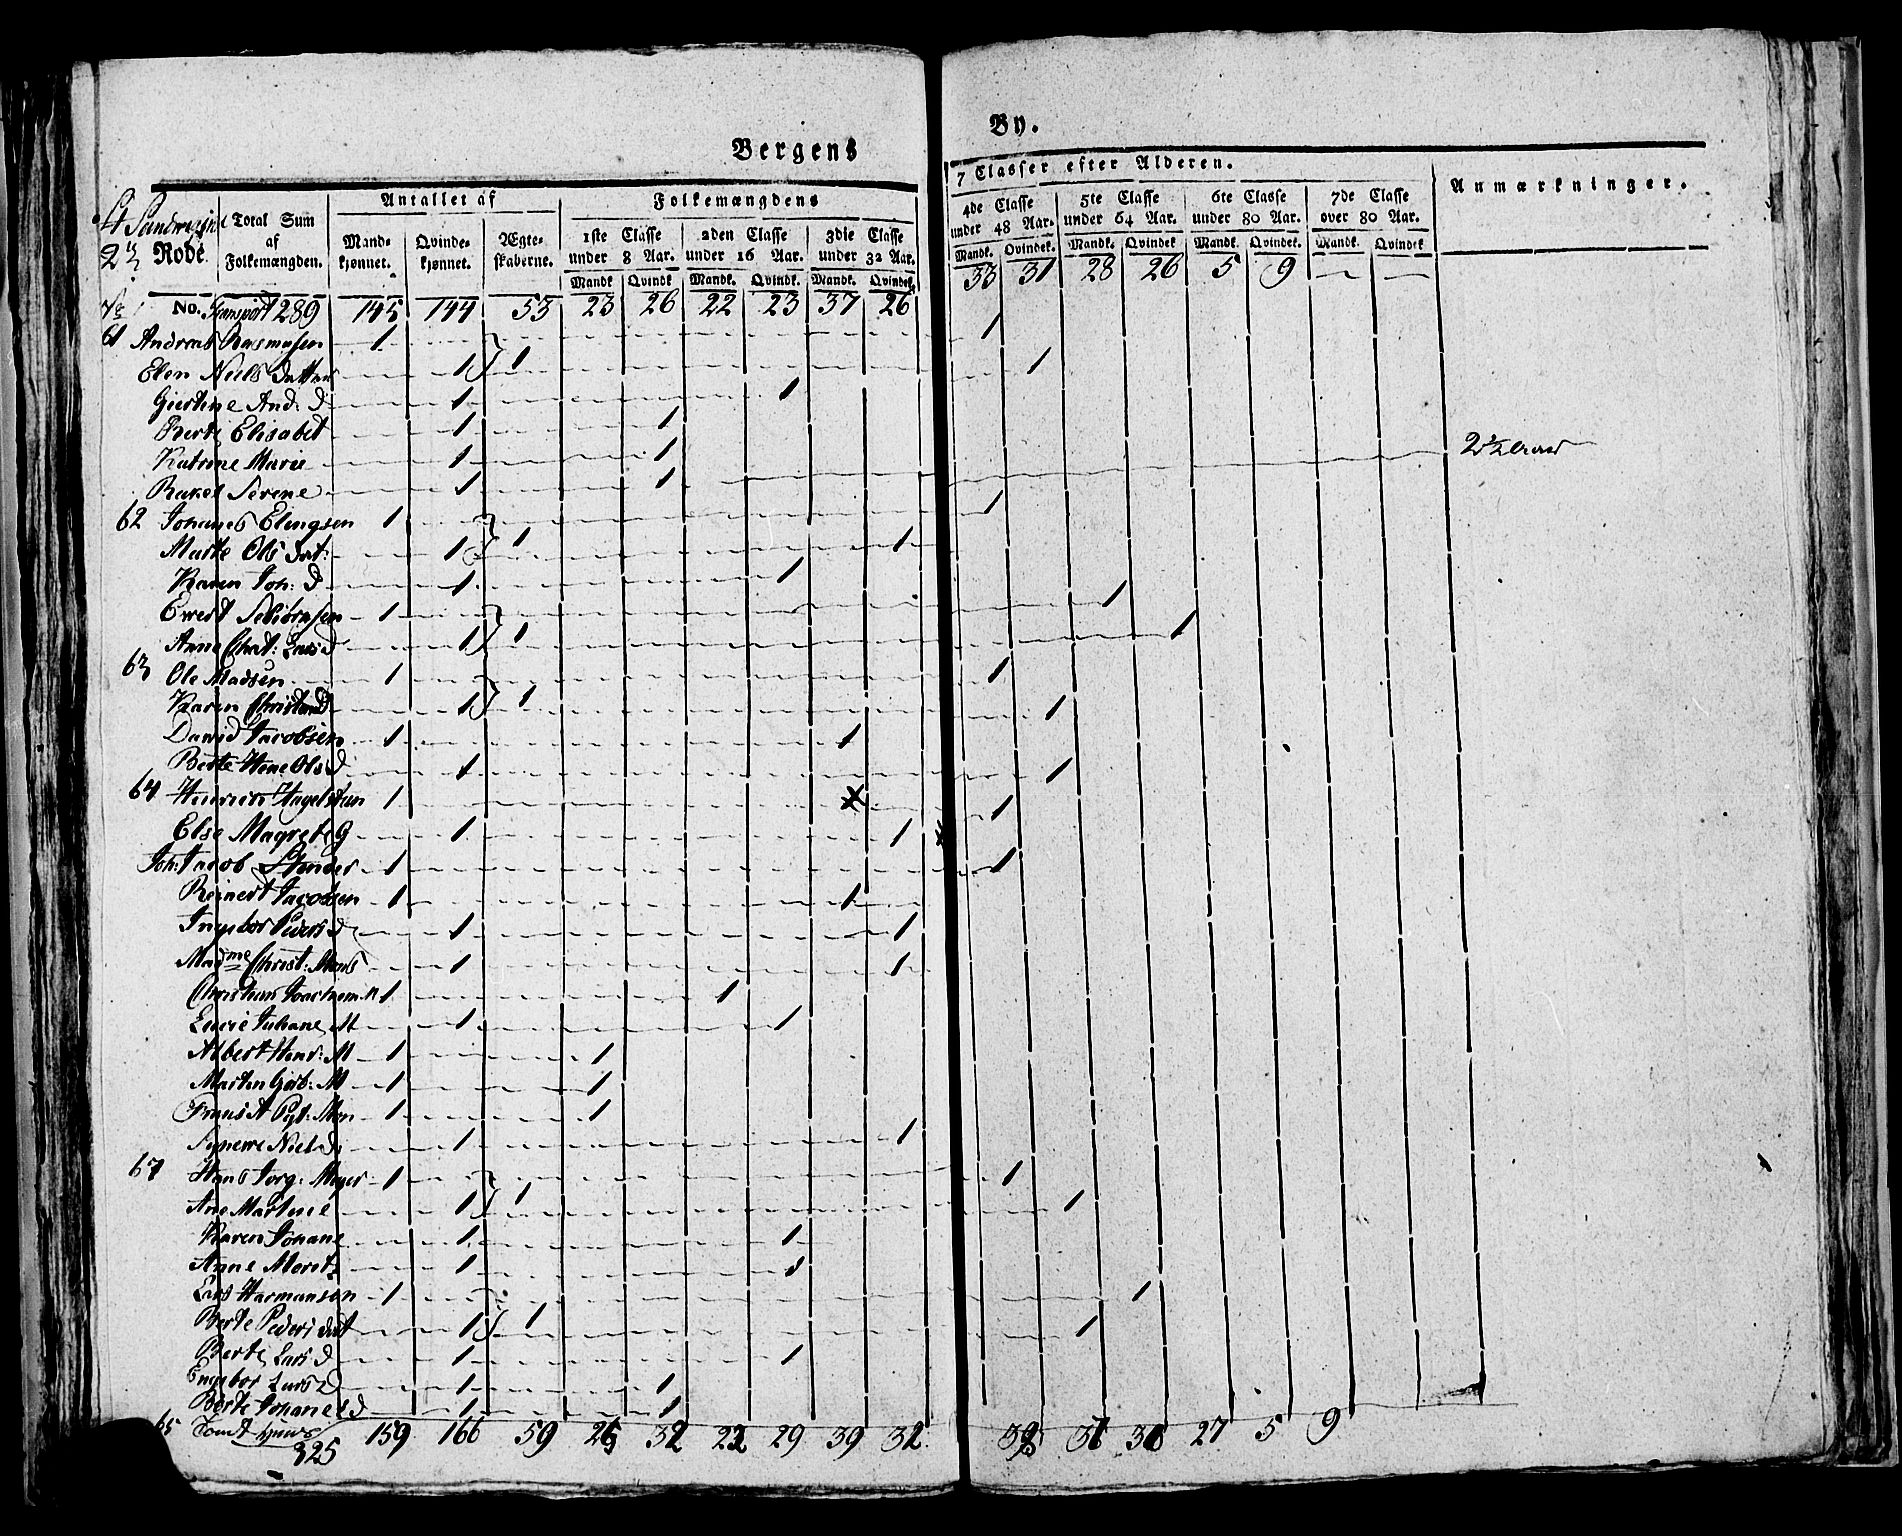 Bergens By.
Rode
Total Sum af Folkemængden.
Antallet af
Mandkjønnet. Qvindekjønnet. Ægteskaberne.
Folkemængdens 7 Classer efter Alderen.
1ste Classe under 8 Aar. 2den Classe under 16 Aar. 3die Classe under 32 Aar. 4de Classe under 48 Aar. 5te Classe under 64 Aar. 6te Classe under 80 Aar. 7de Classe over 80 Aar.
Anmærkninger.
Mandk. Qvindek. Mandk. Qvindek. Mandk. Qvindek. Mandk. Qvindek. Mandk. Qvindek. Mandk. Qvindek. Mandk. Qvindek.
No. Transport 289 145 144 53 23 26 22 23 37 26 33 31 28 26 5 9 — —
61 Andreas Rasmusen 1 1
Elen Niels Datter 1 } 1 1
Giertine And: d 1 1
Berte Elisabet 1 1
Katrine Marie 1 1 2½ Aar
Rakel Serene 1 1
62 Johanes Elingsen 1 1
Marte Ols Dat: 1 } 1 1
Karen Joh: d 1 1
Ewert 1 1
Anne Chat: Lars d 1 } 1 1
63 Ole Madsen 1 1
Karen 1 } 1 1
Dawid Jacobsen 1 1
Berte Ols d 1 1
64 1 1
Else Magrete G 1 1
Joh: Jacob 1 1
Reinert Jacobsen 1 1
Ingebor Peders d 1 1
Madme Christ: 1 1
Joachem M 1 1
Lucie Juhane M 1 1
Albert Henr: M 1 1
Marten M 1 1
Frans 1 1
Niels d 1 1
67 Hans Jørg: Meyer 1 1
Ane Martine 1 } 1 1
Karen Johane 1 1
Anne 1 1
Lars Harmansen 1 1
Berte Peders dat 1 } 1 1
Berte Lars d 1 1
Engebor Lars d 1 1
Berte Johanes d 1 1
65 Tomt
325 159 166 59 26 32 39 32 27 5 9